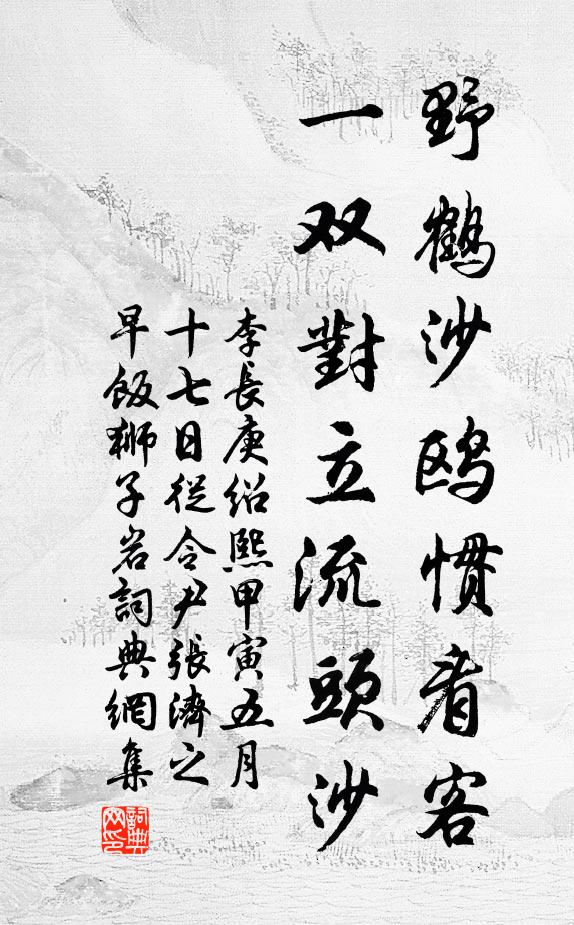 野鶴沙鸥慣看客
一双對立流頭沙
李長庚绍熙甲寅五月
十七日從令尹張濟之
早飯獅子岩詞典網集
詞典
网印